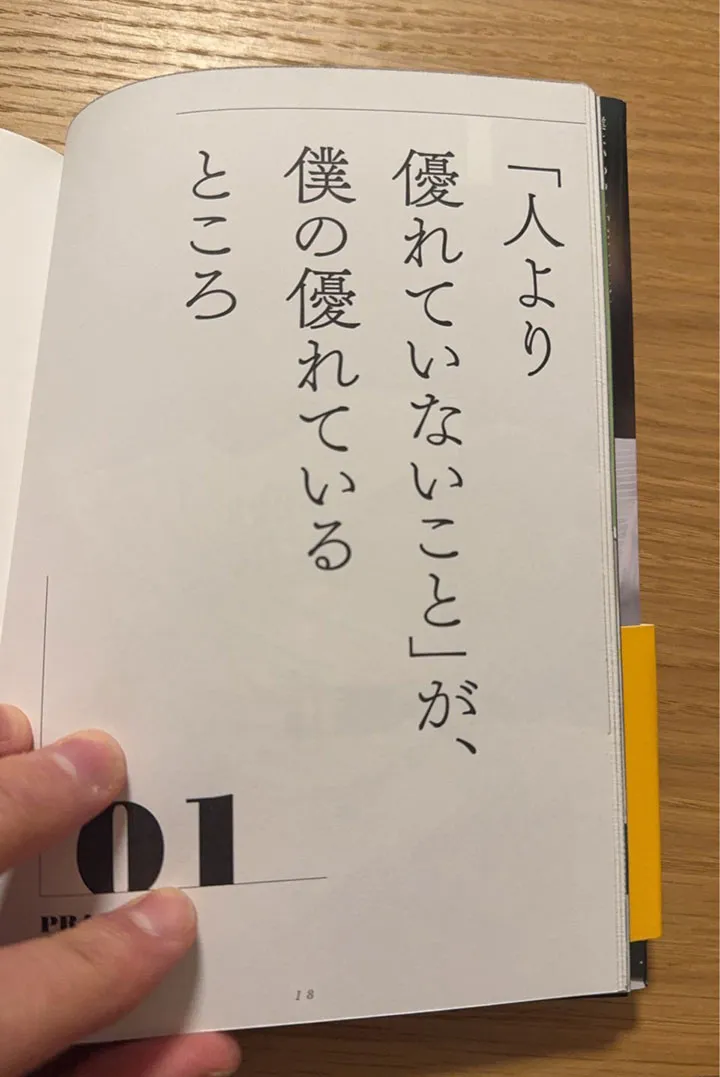 「人より
優れていないこと」が、
僕の優れている
ところ
01
18